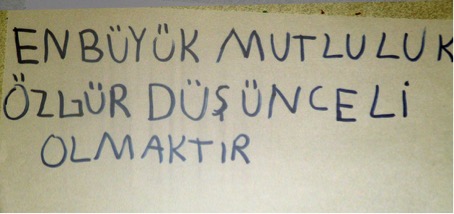 EN BÜYÜK MUTLULUK
ÖZGÜR DÜŞÜNCELİ
OLMAKTIR